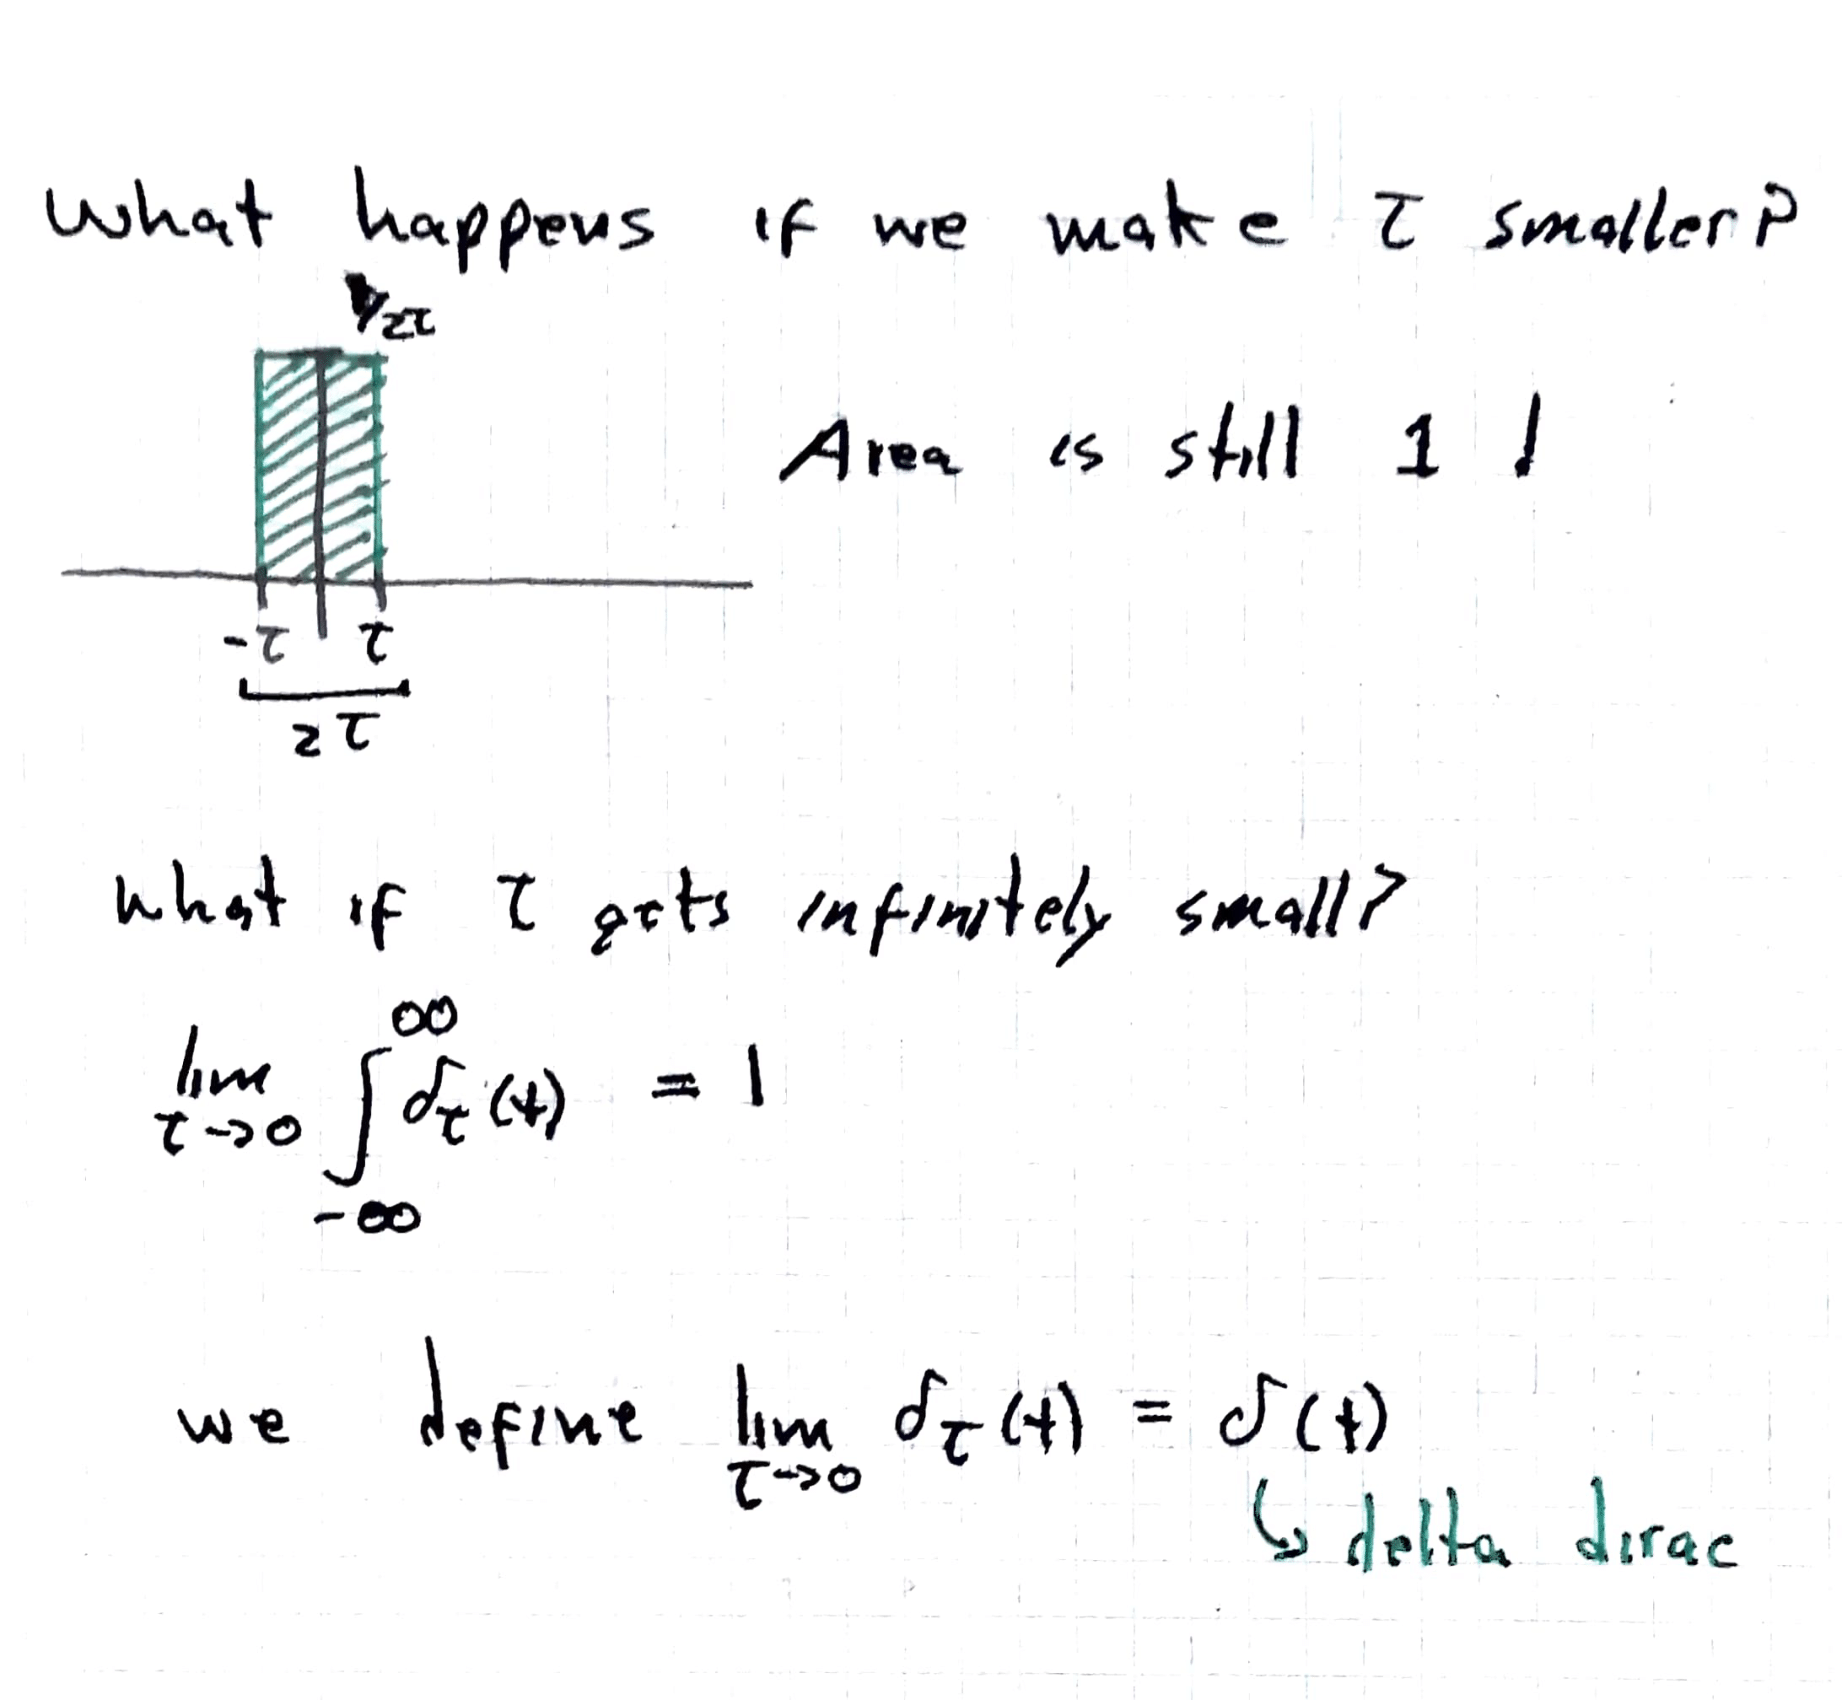 What happens if we make τ smaller?
1/2τ
Area is still 1 !
-τ τ
2τ
What if τ gets infinitely small?
lim τ→0 ∫_{-∞}^{∞} δ_τ(t) = 1
we define lim τ→0 δ_τ(t) = δ(t)
↳ delta dirac